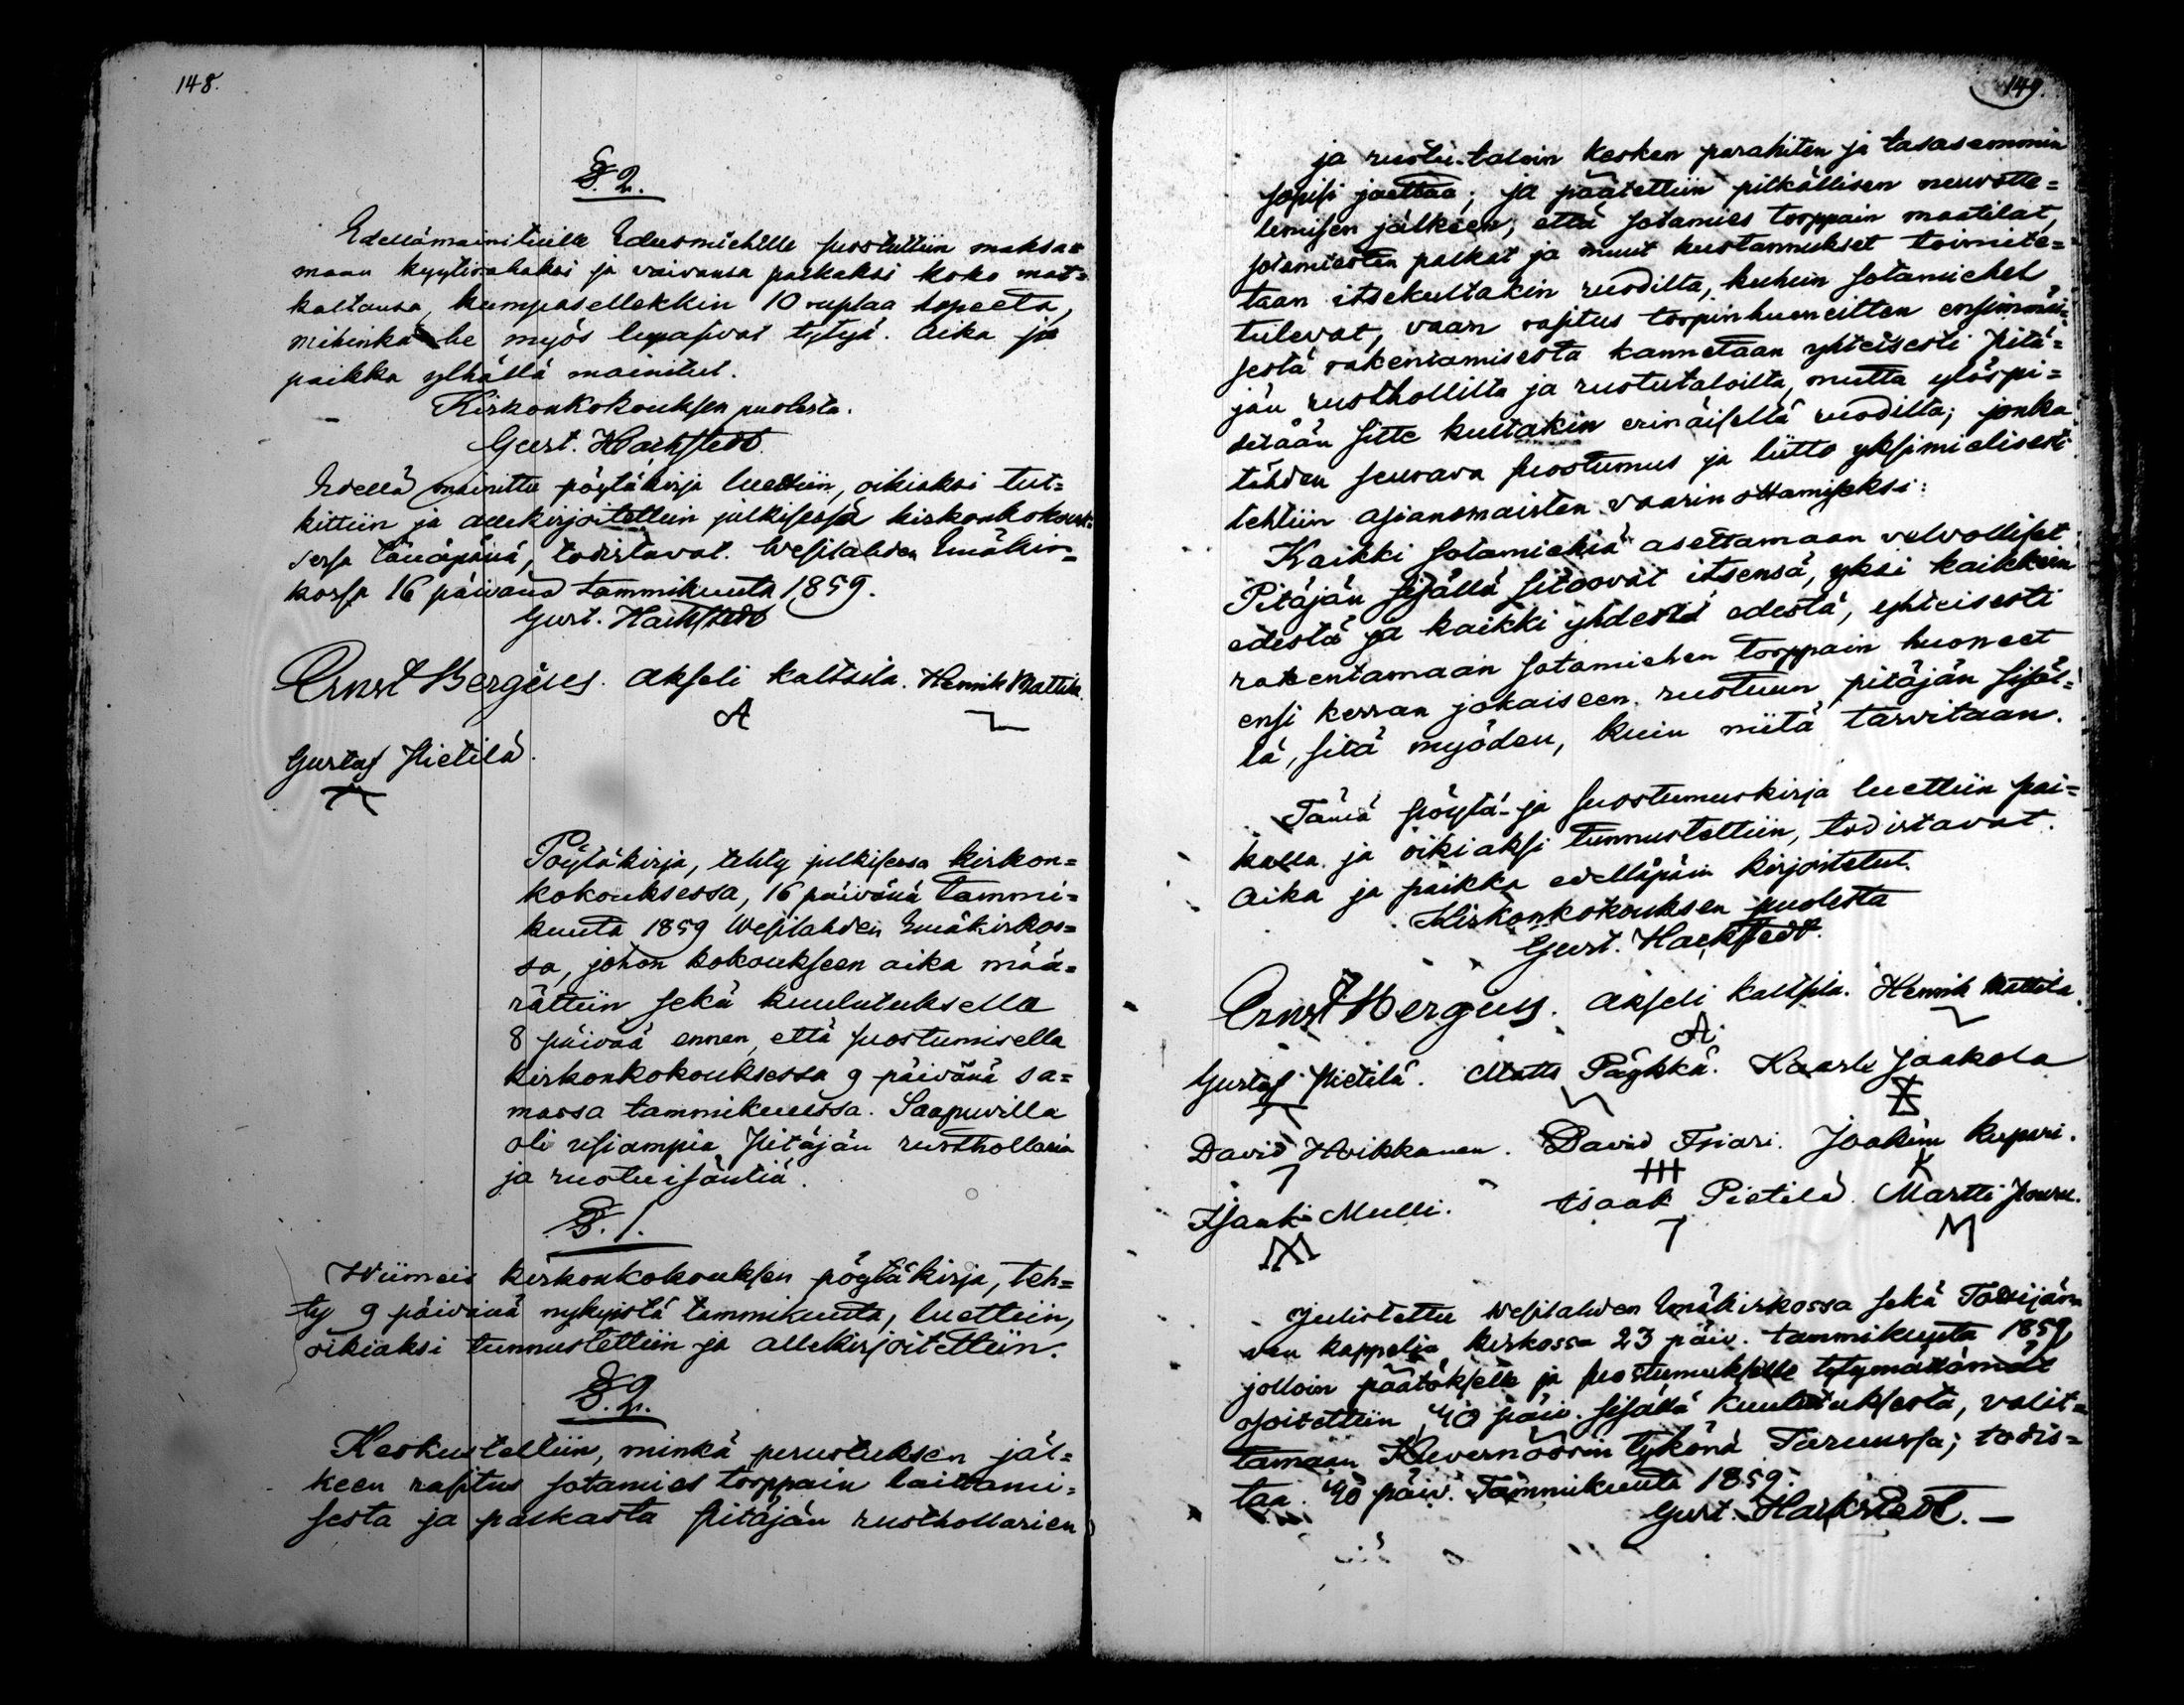 148.
§. 2.
Edellämainituille Edusmiehille suostuttiin maksa=
maan kyytirahaksi ja vaivansa palkaksi koko mat=
kaltansa, kumpasellekkin 10 ruplaa hopeeta,
mihinkä he myös lupasivat tytyä. Aika ja
paikka ylhällä mainitut.
Kirkonkokouksen puolesta.
Gust. Hackstedt.
Edellä mainittu pöytäkirja luettiin, oikiaksi tut=
kittiin ja allekirjoitettiin julkisessa kirkonkokouk=
sessa tänäpänä, todistavat. Wesilahden Emäkir=
kossa 16 päivänä tammikuuta 1859.
Gust. Hackstedt
Ernst Bergius. Akseli Kaltsila. Henrik Mattila.
A
Gustaf Pietilä.
Pöytäkirja, tehty julkisessa kirkon=
kokouksessa, 16 päivänä tammi=
kuuta 1859 Wesilahden Emäkirkos=
sa, johon kokoukseen aika mää=
rättiin sekä kuulutuksella
8 päivää ennen, että suostumisella
kirkonkokouksessa 9 päivänä sa=
massa tammikuussa. Saapuvilla
oli usiampia Pitäjän rusthollaria
ja ruotu isäntiä.
§. 1.
Wiimeis kirkonkokouksen pöytäkirja, teh=
ty 9 päivänä nykyistä tammikuuta, luettiin,
oikiaksi tunnustettiin ja allekirjoitettiin.
§. 2.
Keskusteltiin, minkä perustuksen jäl=
keen rasitus sotamies torppain laittami=
sesta ja palkasta Pitäjän rusthollarien
149.
ja ruotu-taloin kesken parahiten ja tasasemmin
sopisi jaettaa; ja päätettiin pitkällisen neuvotte=
lemisen jälkeen, että sotamies torppain maatilat,
sotamiesten palkat ja muut kustannukset toimite=
taan itsekultakin ruodilta, kuhun sotamiehet
tulevat, vaan rasitus torpinhuoneitten ensimmäi=
sestä rakentamisesta kannetaan yhteisesti Pitä=
jän rusthollilta ja ruotutaloilta, mutta ylöspi=
detään sitte kultakin erinäiseltä ruodilta; jonka
tähden seurava suostumus ja liitto yksimielisesti
tehtiin asianomaisten vaarinottamiseksi:
Kaikki sotamiehiä asettamaan velvolliset
Pitäjän sisällä sitoovat itsensä, yksi kaikkein
edestä ja kaikki yhdestä edestä, yhteisesti
rakentamaan sotamiehen torppain huoneet
ensi kerran jokaiseen ruotuun pitäjän sisäl=
lä, sitä myöden, kuin niitä tarvitaan.
Tämä pöytä- ja suostumuskirja luettiin pai=
kalla ja oikiaksi tunnustettiin, todistavat.
Aika ja paikka edelläpäin kirjoitetut.
Kirkonkokouksen puolesta
Gust. Hackstedt.
Ernst Bergius. Akseli Kaltsila. Henrik Mattila.
A.
Gustaf Pietilä. Matts Päykkä. Kaarle Jaakola
David Hoikkanen. David Isiari. Joakim Kupari.
Isaak Mulli. Isaak Pietilä. Martti
M
Julistettu Wesilahden Emäkirkossa sekä Tottijär=
ven kappelin kirkossa 23 päiv. tammikuuta 1859,
jolloin päätökselle ja suostumukselle tytymättömät
osoitettiin, 40 päiv. sisällä kuulutuksesta, valit=
tamaan Kuvernöörin tykönä Turuussa; todis=
taa. 40 päiv. Tammikuuta 1859.
Gust. Hackstedt. —